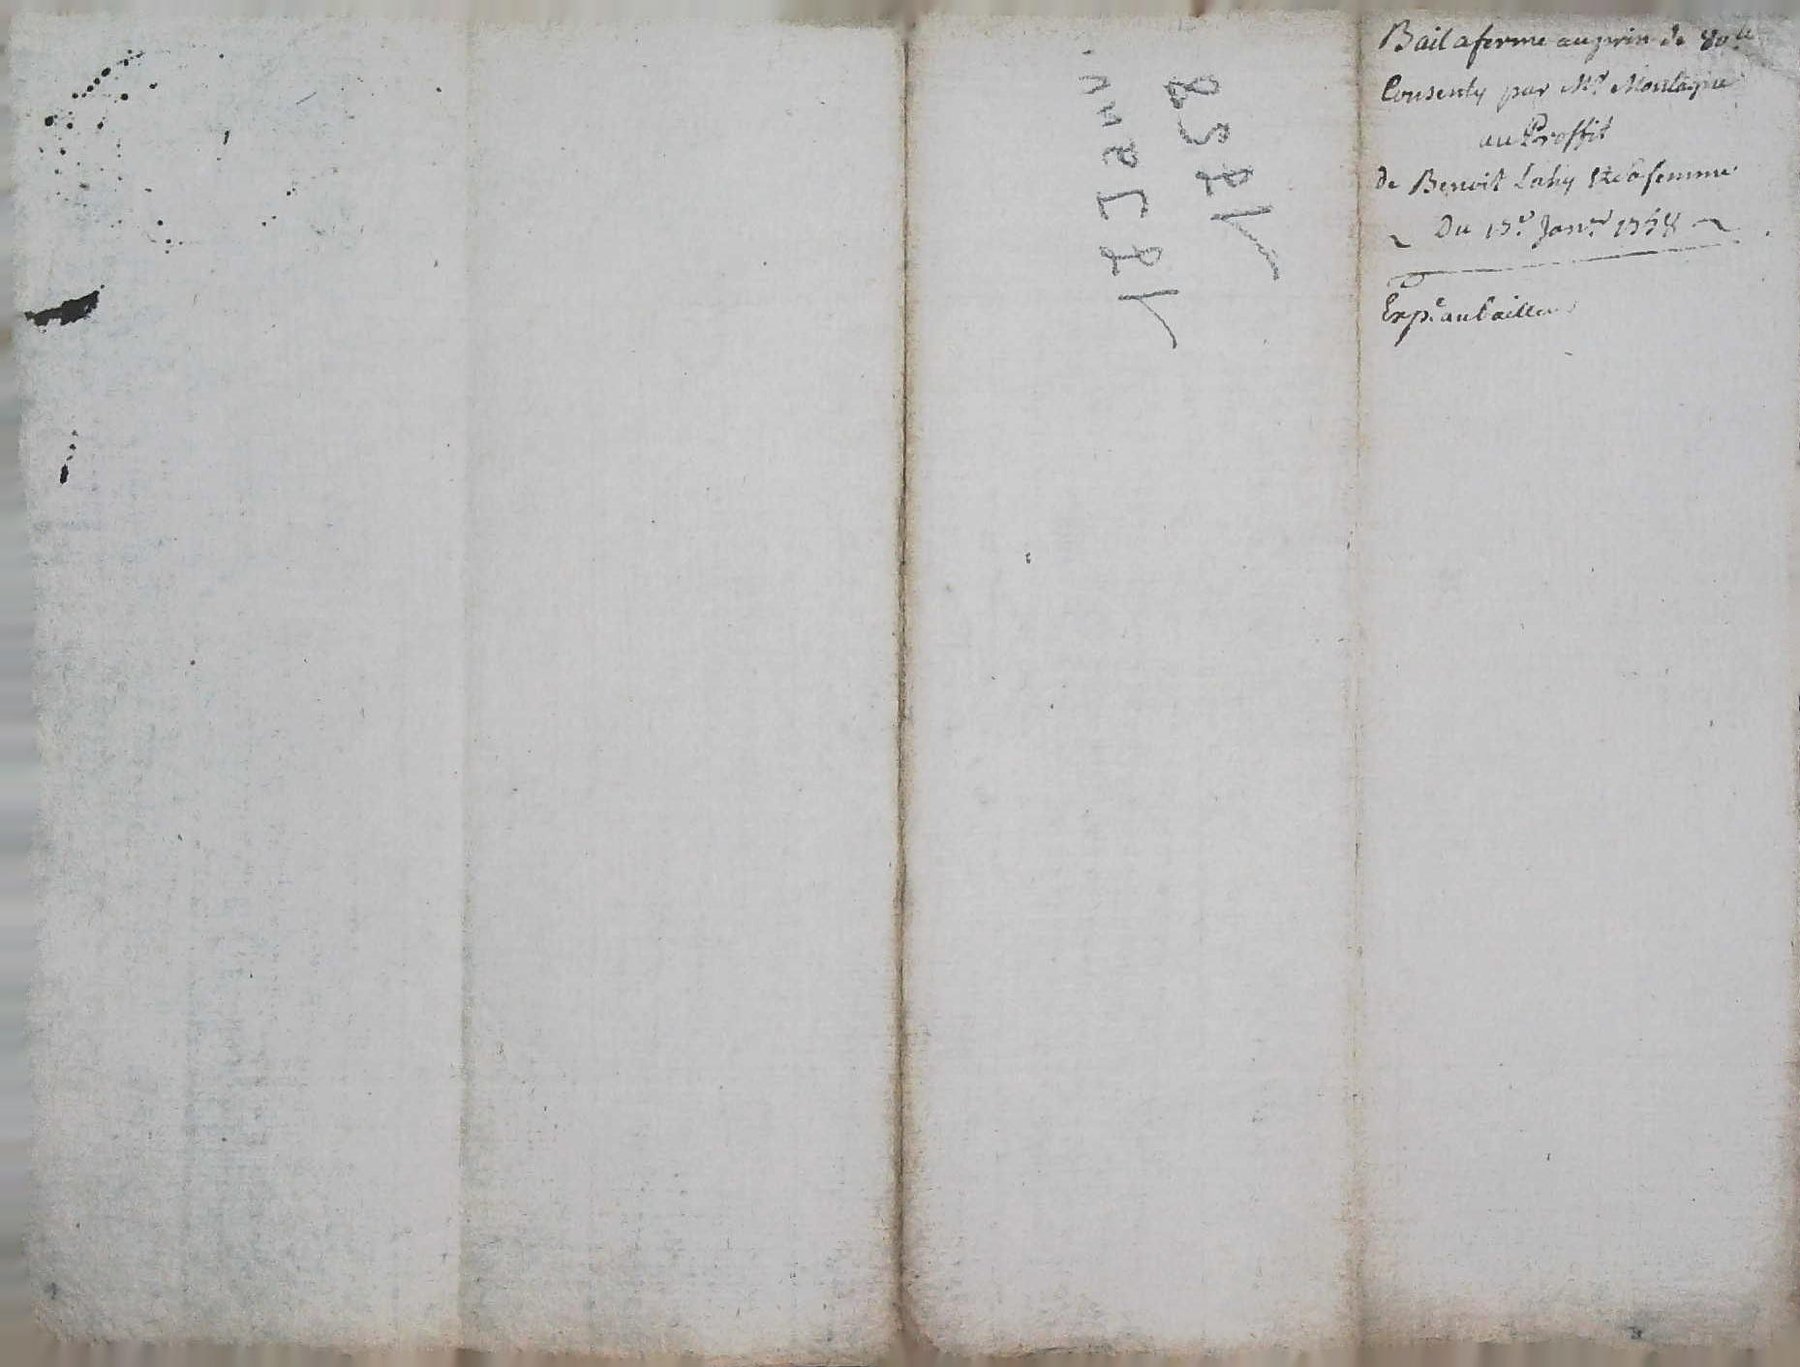 Bail a ferme au prix de 80ᵗᵗ
Consenty par Mʳ Montagne
au Proffit
de Benoit Lahy & sa femme
Du 13ᵉ Janᵛ 1758
Expᵉ au bailleur
1758